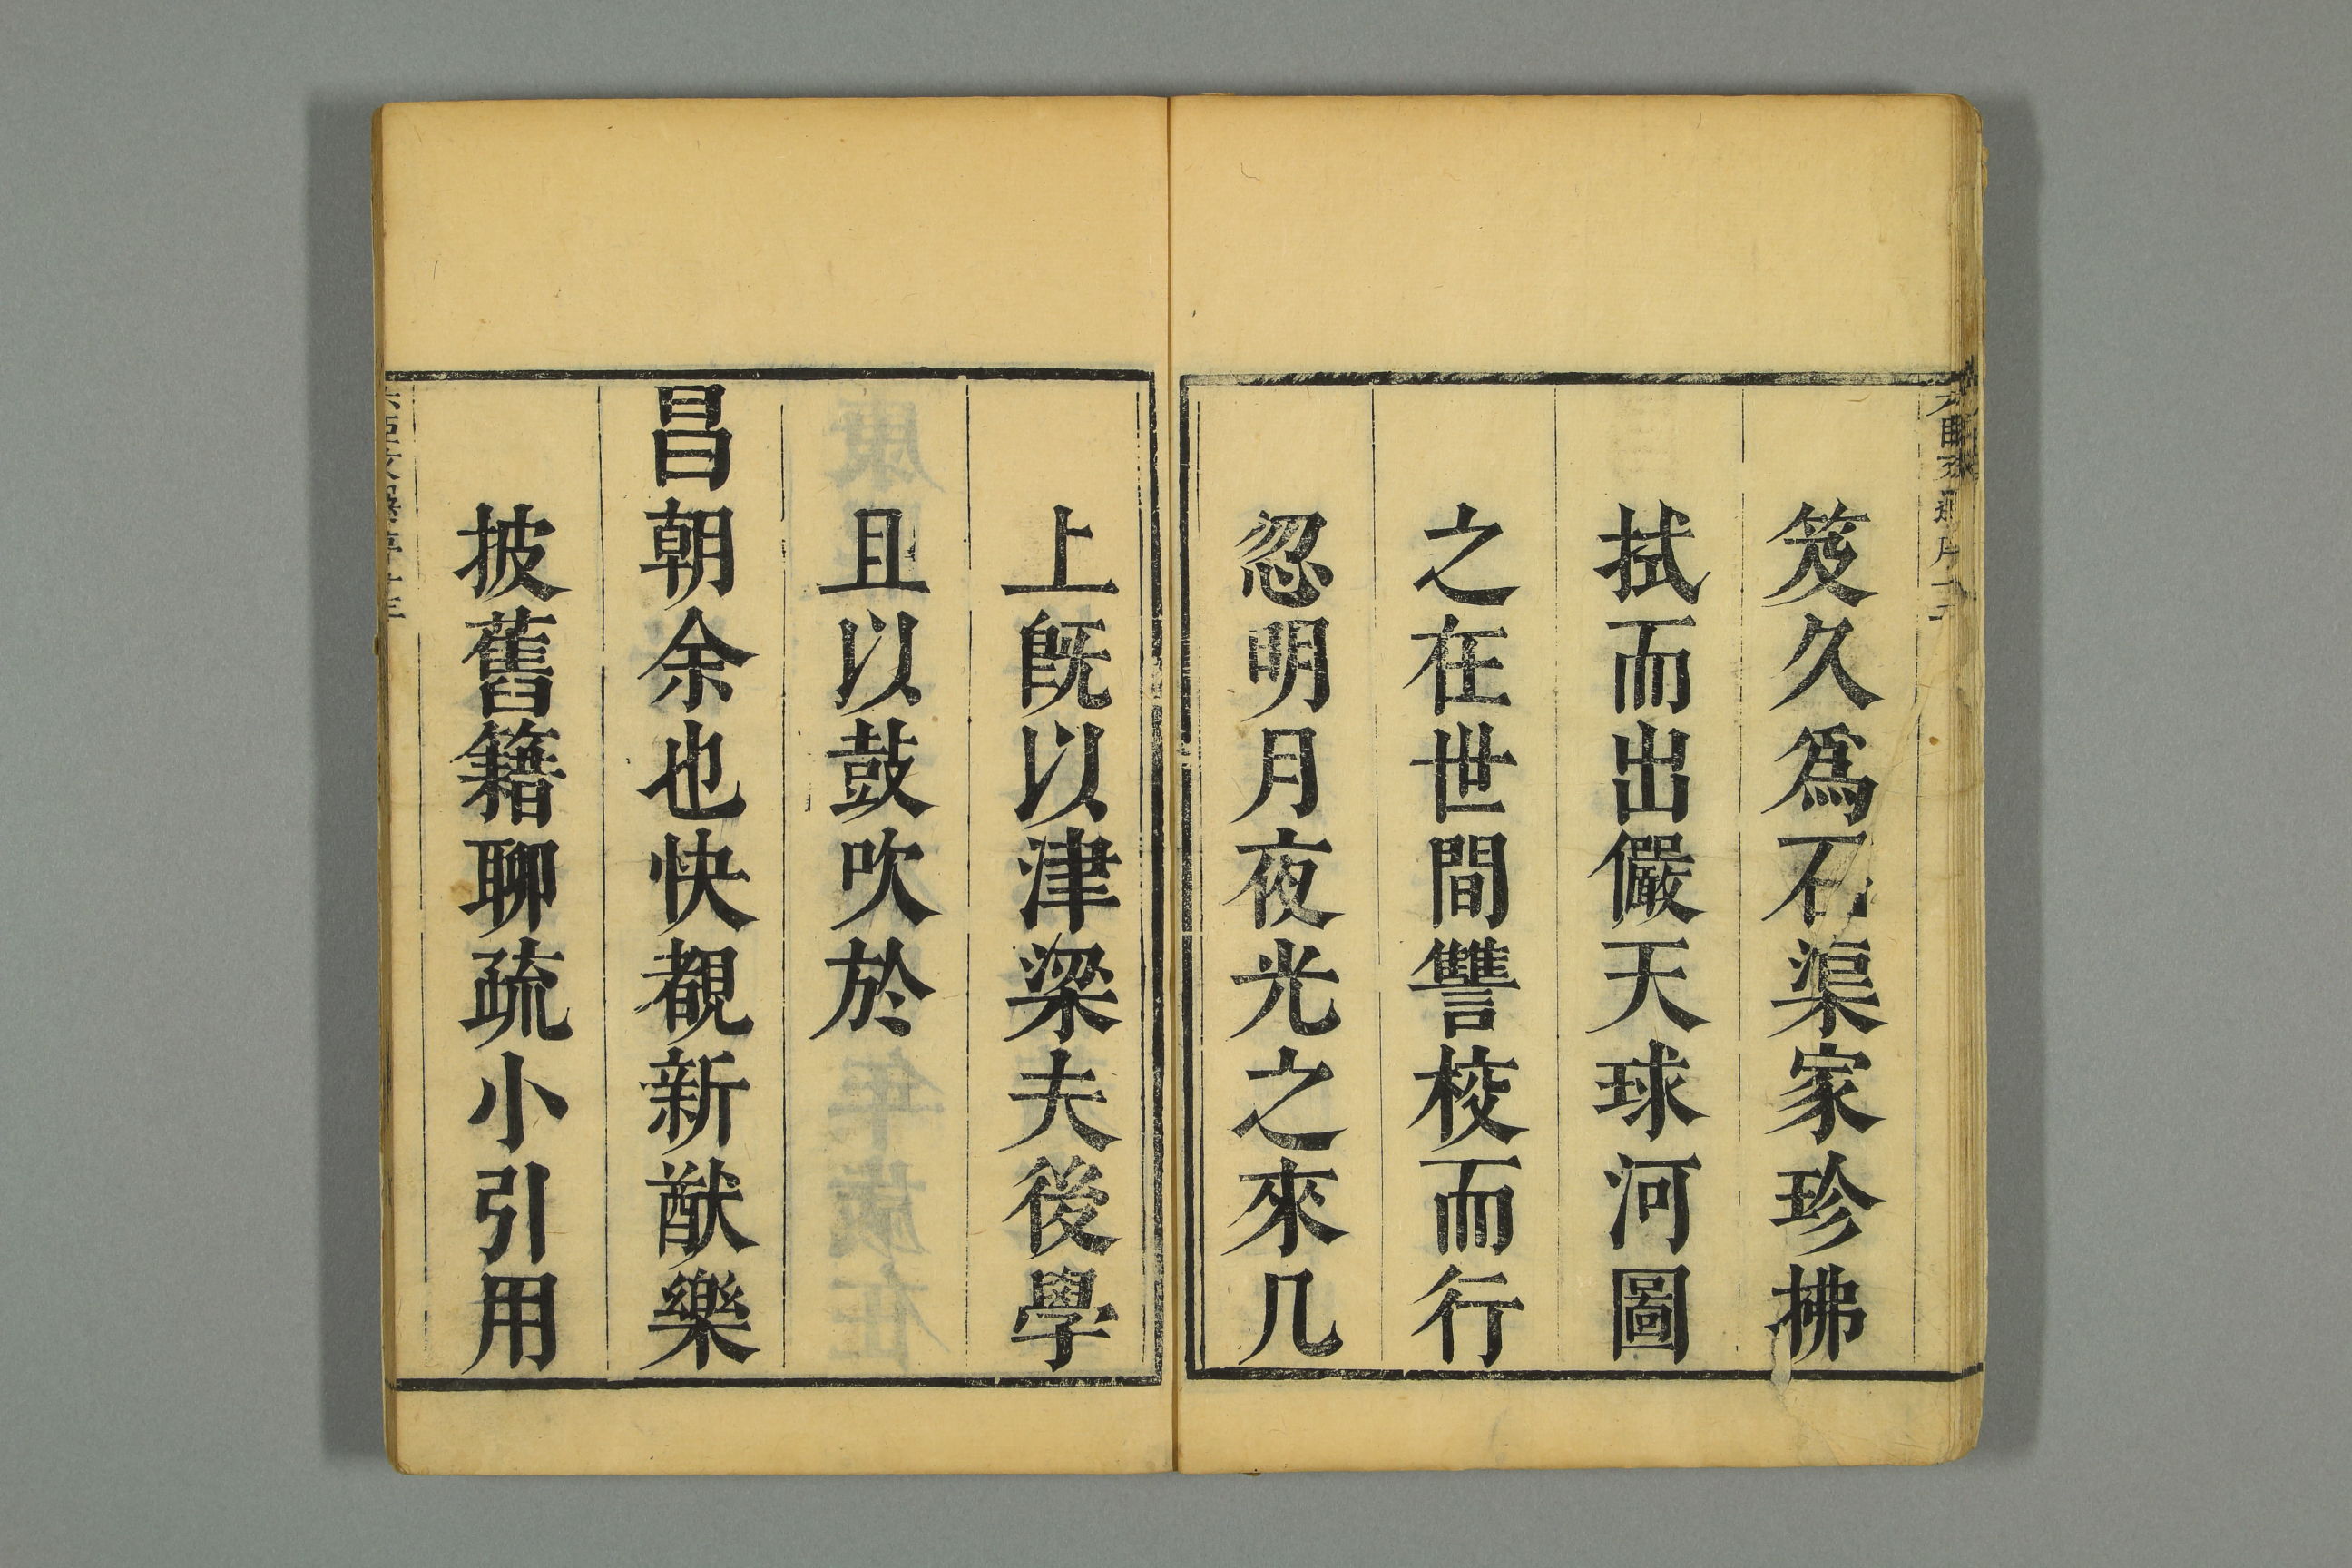 笈久爲石渠家珍拂
拭而出儼天球河圖
之在世間讐校而行
忽明月夜光之來几
上旣以津梁夫後學
且以鼓吹於
昌朝余也快覩新猷樂
披舊籍聊疏小引用